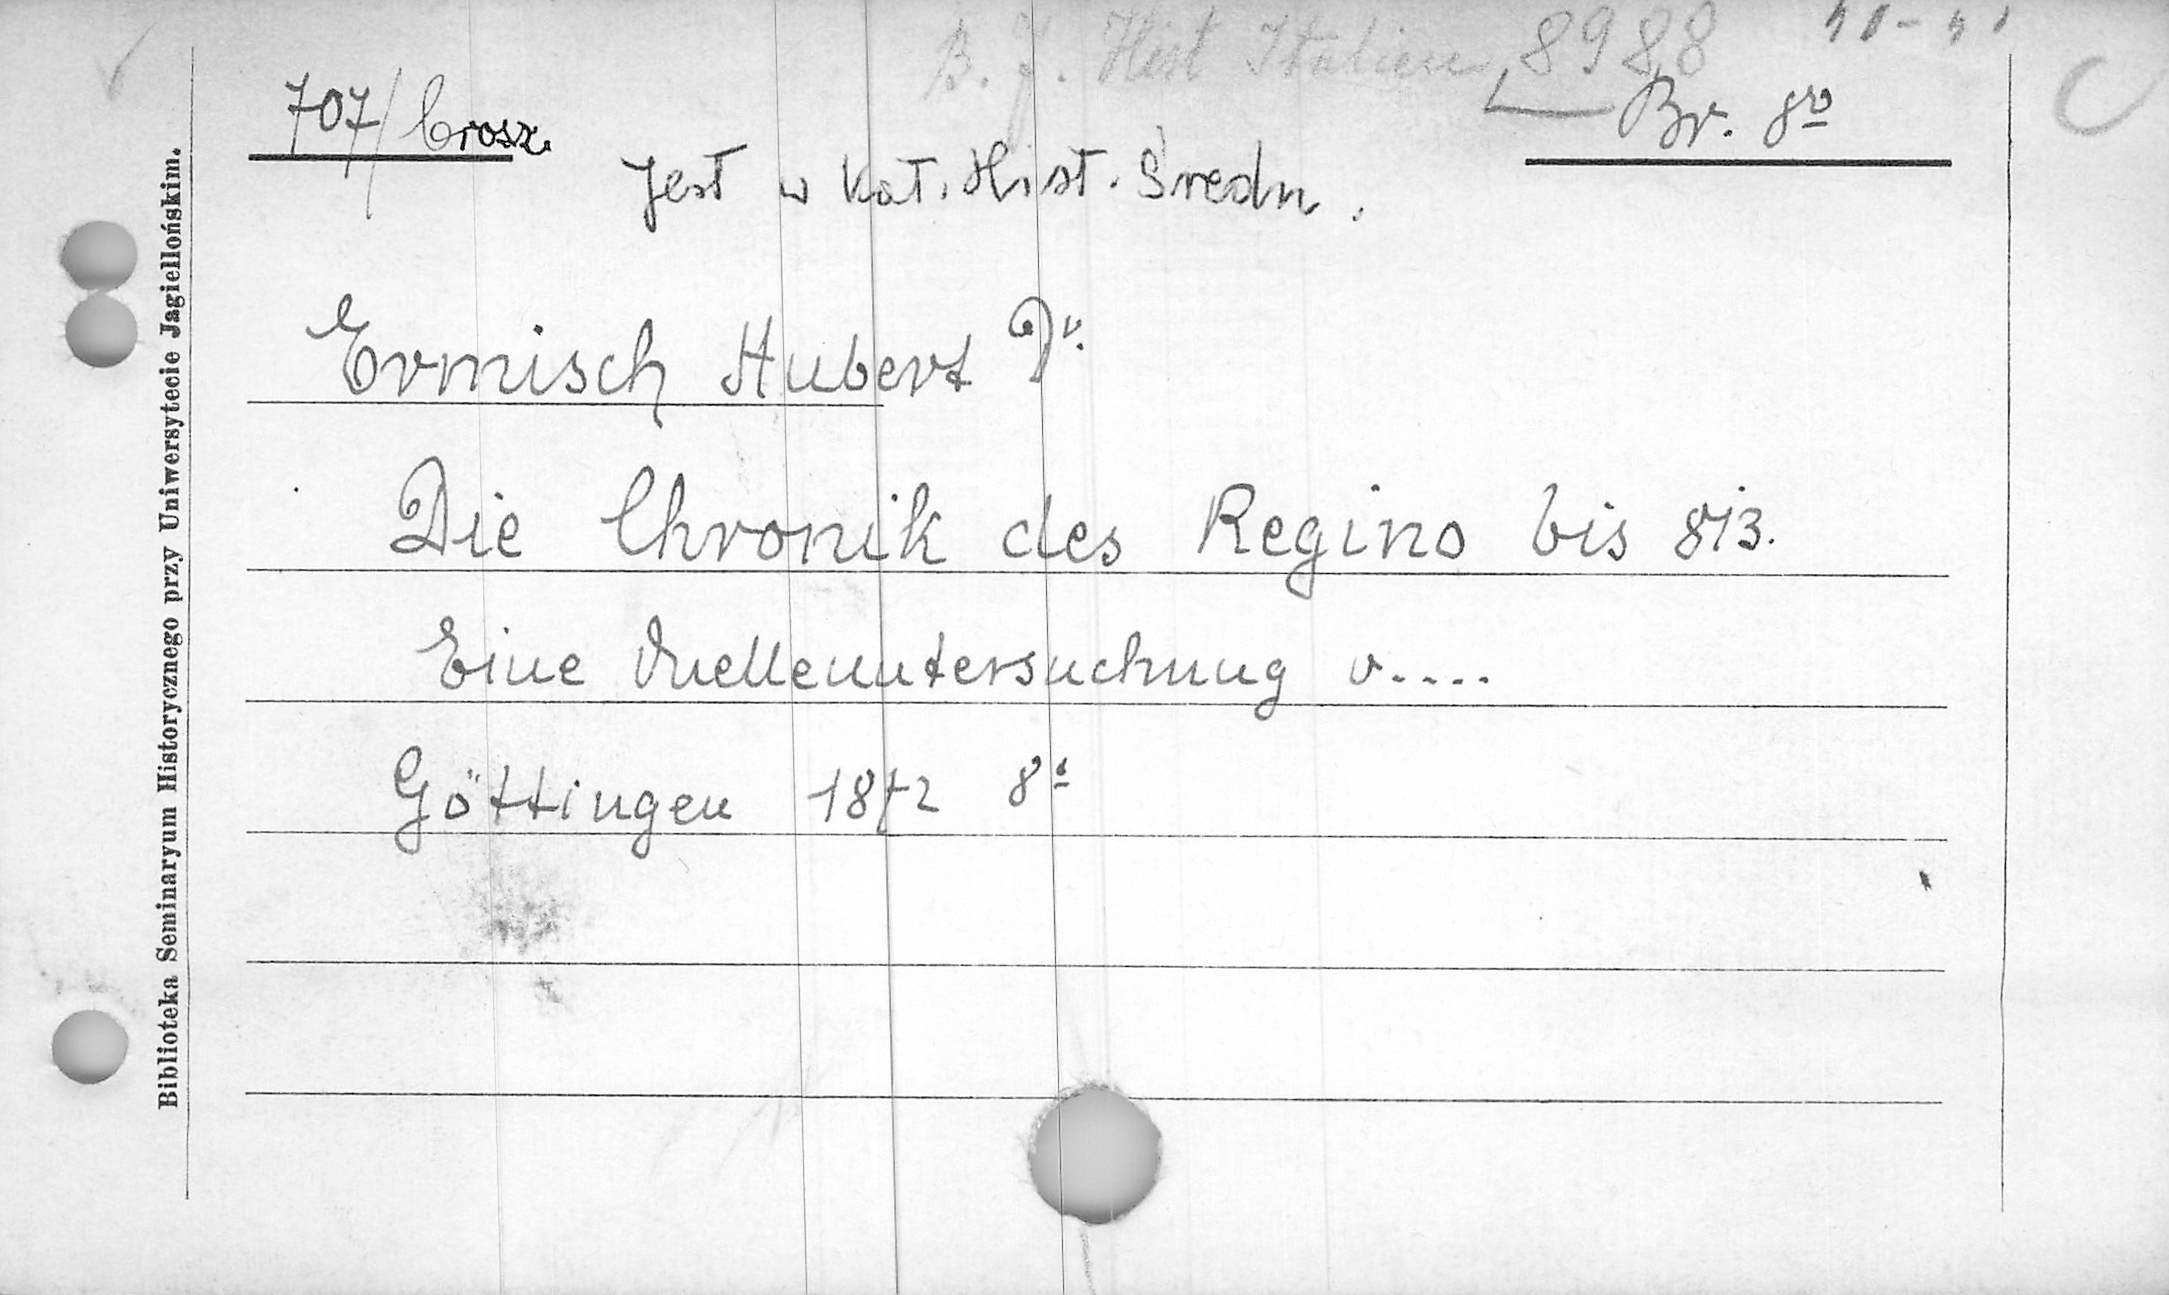 B. J. Hist Italien 8988
707/brosz. Br. 8º
Jest w kat. Hist. Średn.
Ermisch Hubert Dr.
Die Chronik des Regino bis 813.
Eine Quellenuntersuchung v.....
Göttingen 1872 8º
Biblioteka Seminaryum Historycznego przy Uniwersytecie Jagiellońskim.